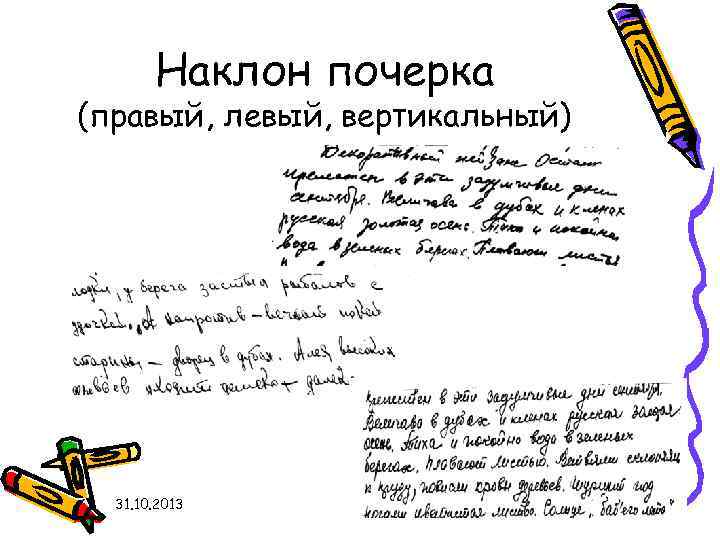 Наклон почерка
(правый, левый, вертикальный)
Декоративный пейзаж Останк
прелестен в эти задумчивые дни
сентября. Величава в дубах и кленах
русская золотая осень. Тиха и покойна
вода в зеленых берегах. Плавают листья
лодки, у берега застыл рыболов с
удочкой. А напротив – вечный покой
старины – дворец в дубах. Алея высоких
далек
прелестен в эти задумчивые дни сентября.
Величава в дубах и кленах русская золотая
осень. Тиха и покойно вода в зеленых
берегах. Плавают листья.
к пруду, кроны деревьев. Шуршит под
ногами листва. Солнце „баб'его лета"
31.10.2013